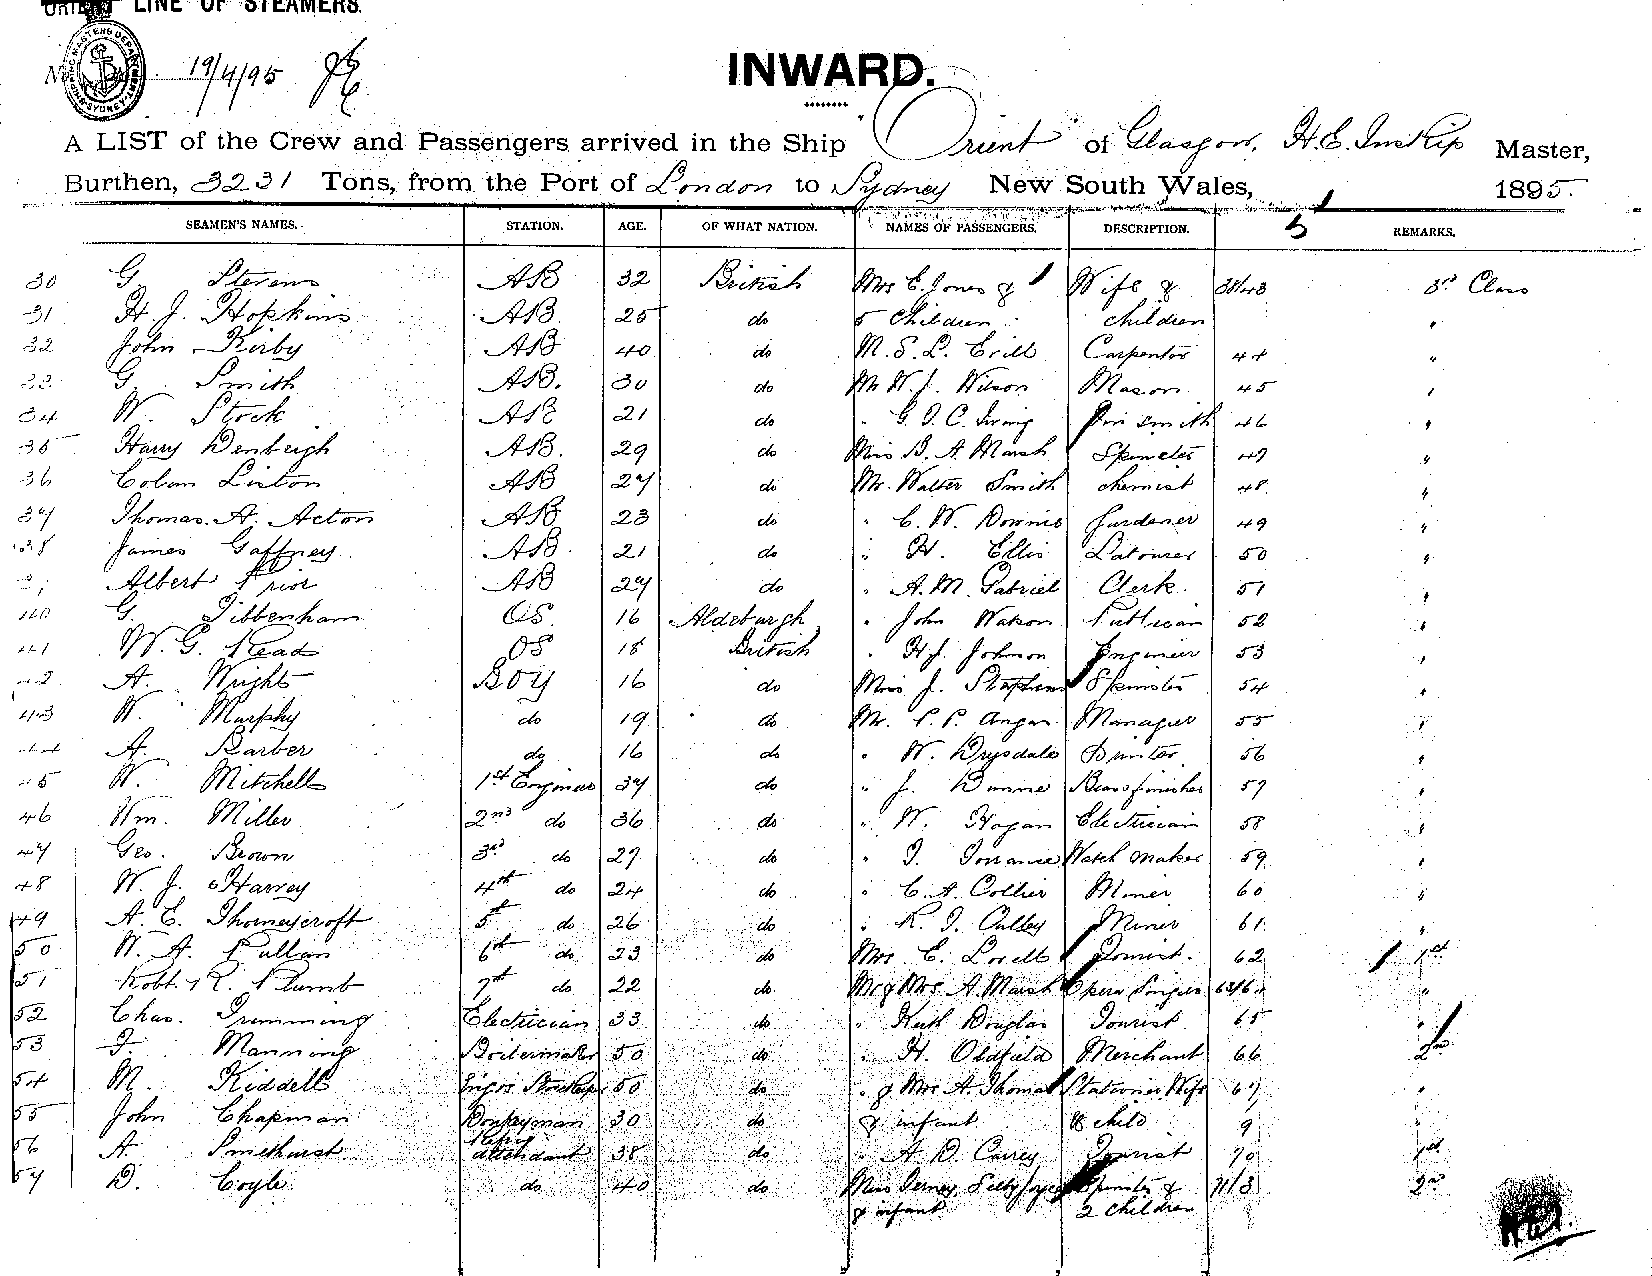 ORIENT LINE OF STEAMERS.
19/4/95
INWARD.
A LIST of the Crew and Passengers arrived in the Ship "Orient" of Glasgow, H.E. Inskip Master,
Burthen, 3231 Tons, from the Port of London to Sydney New South Wales, 1895.
SEAMEN'S NAMES. STATION. AGE. OF WHAT NATION. NAMES OF PASSENGERS. DESCRIPTION. REMARKS.
30 G. Stevens AB 32 British Mrs E. Jones & Wife & 38/43 3rd Class
31 H. J. Hopkins AB 25 do 5 Children children "
32 John Kirby AB 40 do M. S. L. Carpenter 44 "
33 G. Smith AB. 30 do Mr W. J. Wilson Mason 45 "
34 W. Stock AB 21 do " G. O. C. Irving Tin smith 46 "
35 Harry Denbeigh AB. 29 do Miss B. A. Marsh Spinster 47 "
36 Colin Liston AB 27 do Mr. Walter Smith chemist 48 "
37 Thomas. A. Acton AB 23 do " C. W. Downie Gardener 49 "
38 James Gaffney AB 21 do " H. Ellis Labourer 50 "
Albert Prior AB 27 do " A. M. Gabriel Clerk 51 "
40 G. Tibbenham OS. 16 Aldeburgh " John Watson Publican 52 "
41 W. G. Read OS 18 British " H. J. Johnson Engineer 53 "
42 A. Wright BOY 16 do Miss J. Stephens Spinster 54 "
43 W. Murphy do 19 do Mr. P. P. Angan Manager 55 "
44 A. Barber do 16 do " W. Drysdale 56 "
45 W. Mitchell 1st Engineer 37 do " J. Dunne Brassfinisher 57 "
46 Wm. Miller 2nd do 36 do " W. Hogan Electrician 58 "
47 Geo. Brown 3rd do 27 do " J. Torrance Watch maker 59 "
48 W. J. Harvey 4th do 24 do " C. A. Collier Miner 60 "
49 A. E. Thorneycroft 5th do 26 do " R. J. Culley Miner 61 "
50 W. A. Pullan 6th do 23 do Mrs E. Lovell Tourist. 62 1st
51 Robt. R. Plumb 7th do 22 do Mr & Mrs. A. Marsh Opera Singer 63/64 "
52 Chas. Trimming Electrician 33 do " Keith Douglas Tourist 65 "
53 F. Manning Boilermaker 50 do " H. Oldfield Merchant 66 2nd
54 M. Kiddell Engrs Storekpr 50 do " & Mrs A. Thomas Stationer Wife 67 "
55 John Chapman Donkeyman 30 do & infant & child 9 "
56 A. Smethurst attendant 38 do " A. D. Carrey Tourist 70 1st
57 D. Coyle do 40 do Miss Spinster & 71/3 2nd
& infant 2 children